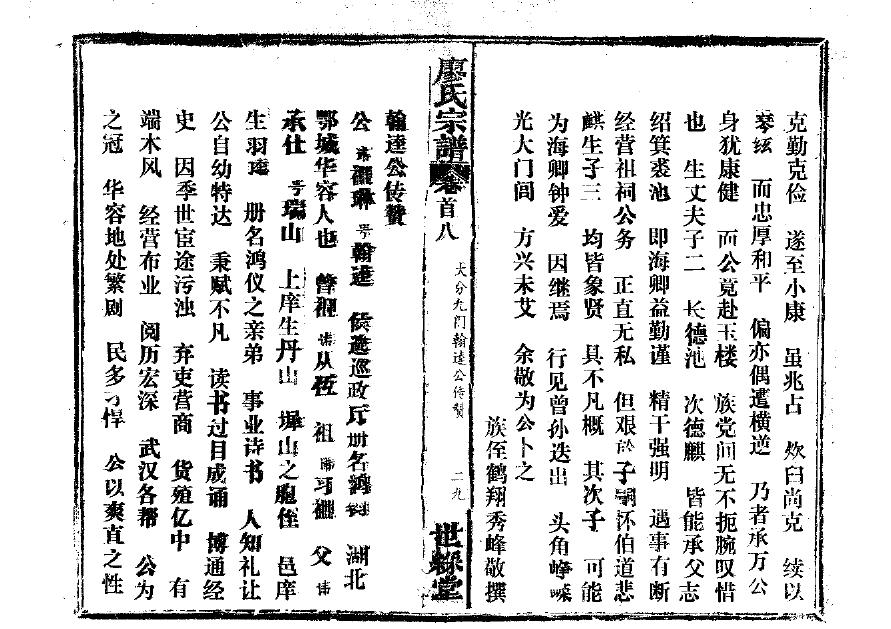 克勤克俭　遂至小康　虽兆占　炊臼尚克　续以
琴弦　而忠厚和平　偏亦偶遭横逆　乃者承万公
身犹康健　而公竟赴玉楼　族党间无不扼腕叹惜
也　生丈夫子二　长德池　次德麒　皆能承父志
绍箕裘池　即海卿益勤谨　精干强明　遇事有断
经营祖祠公务　正直无私　但艰於子嗣怀伯道悲
麒生子三　均皆象贤　具不凡概　其次子　可能
为海卿钟爱　因继焉　行见曾孙迭出　头角峥嵘
光大门闾　方兴未艾　余敬为公卜之
族侄鹤翔秀峰敬撰
廖氏宗谱 卷首八 大分九门翰达公传赞 二九 世䌽堂
翰达公传赞
公 号翰达 候选巡政厅册名鸿 湖北
鄂城华容人也 曾祖 从 祖 习 父
承仕　号瑞山　上庠生丹山　墀山之胞侄　邑庠
生羽 　册名鸿仪之亲弟　事业诗书　人知礼让
公自幼特达　秉赋不凡　读书过目成诵　博通经
史　因季世宦途污浊　弃吏营商　货殖亿中　有
端木风　经营布业　阅历宏深　武汉各帮　公为
之冠　华容地处繁剧　民多刁悍　公以爽直之性